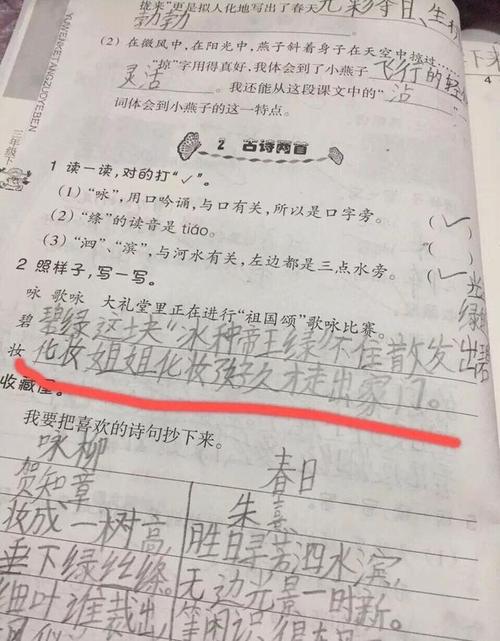 拢来”更是拟人化地写出了春天九彩夺日、生机
勃勃
(2) 在微风中,在阳光中,燕子斜着身子在天空中掠过……
“掠”字用得真好,我体会到了小燕子飞行的轻
灵活。我还能从这段课文中的“沾
词体会到小燕子的这一特点。
YUWENKETANGZUOYEBEN
三年级下
下来
2 古诗两首
1 读一读,对的打“✓”。
(1) “咏”,用口吟诵,与口有关,所以是口字旁。(✓
(2) “绦”的读音是 tiáo。(
(3) “泗”、“滨”,与河水有关,左边都是三点水旁。(✓
2 照样子,写一写。
咏 歌咏 大礼堂里正在进行“祖国颂”歌咏比赛。
碧 碧绿 这块“冰种帝王绿”不住散发出碧
绿
光
妆 化妆 姐姐化妆好久才走出家门。
收藏屋。
我要把喜欢的诗句抄下来。
咏柳
贺知章
妆成一树高,
垂下绿丝绦。
细叶谁裁出,
春日
朱熹
胜日寻芳泗水滨,
无边光景一时新。
等闲识得